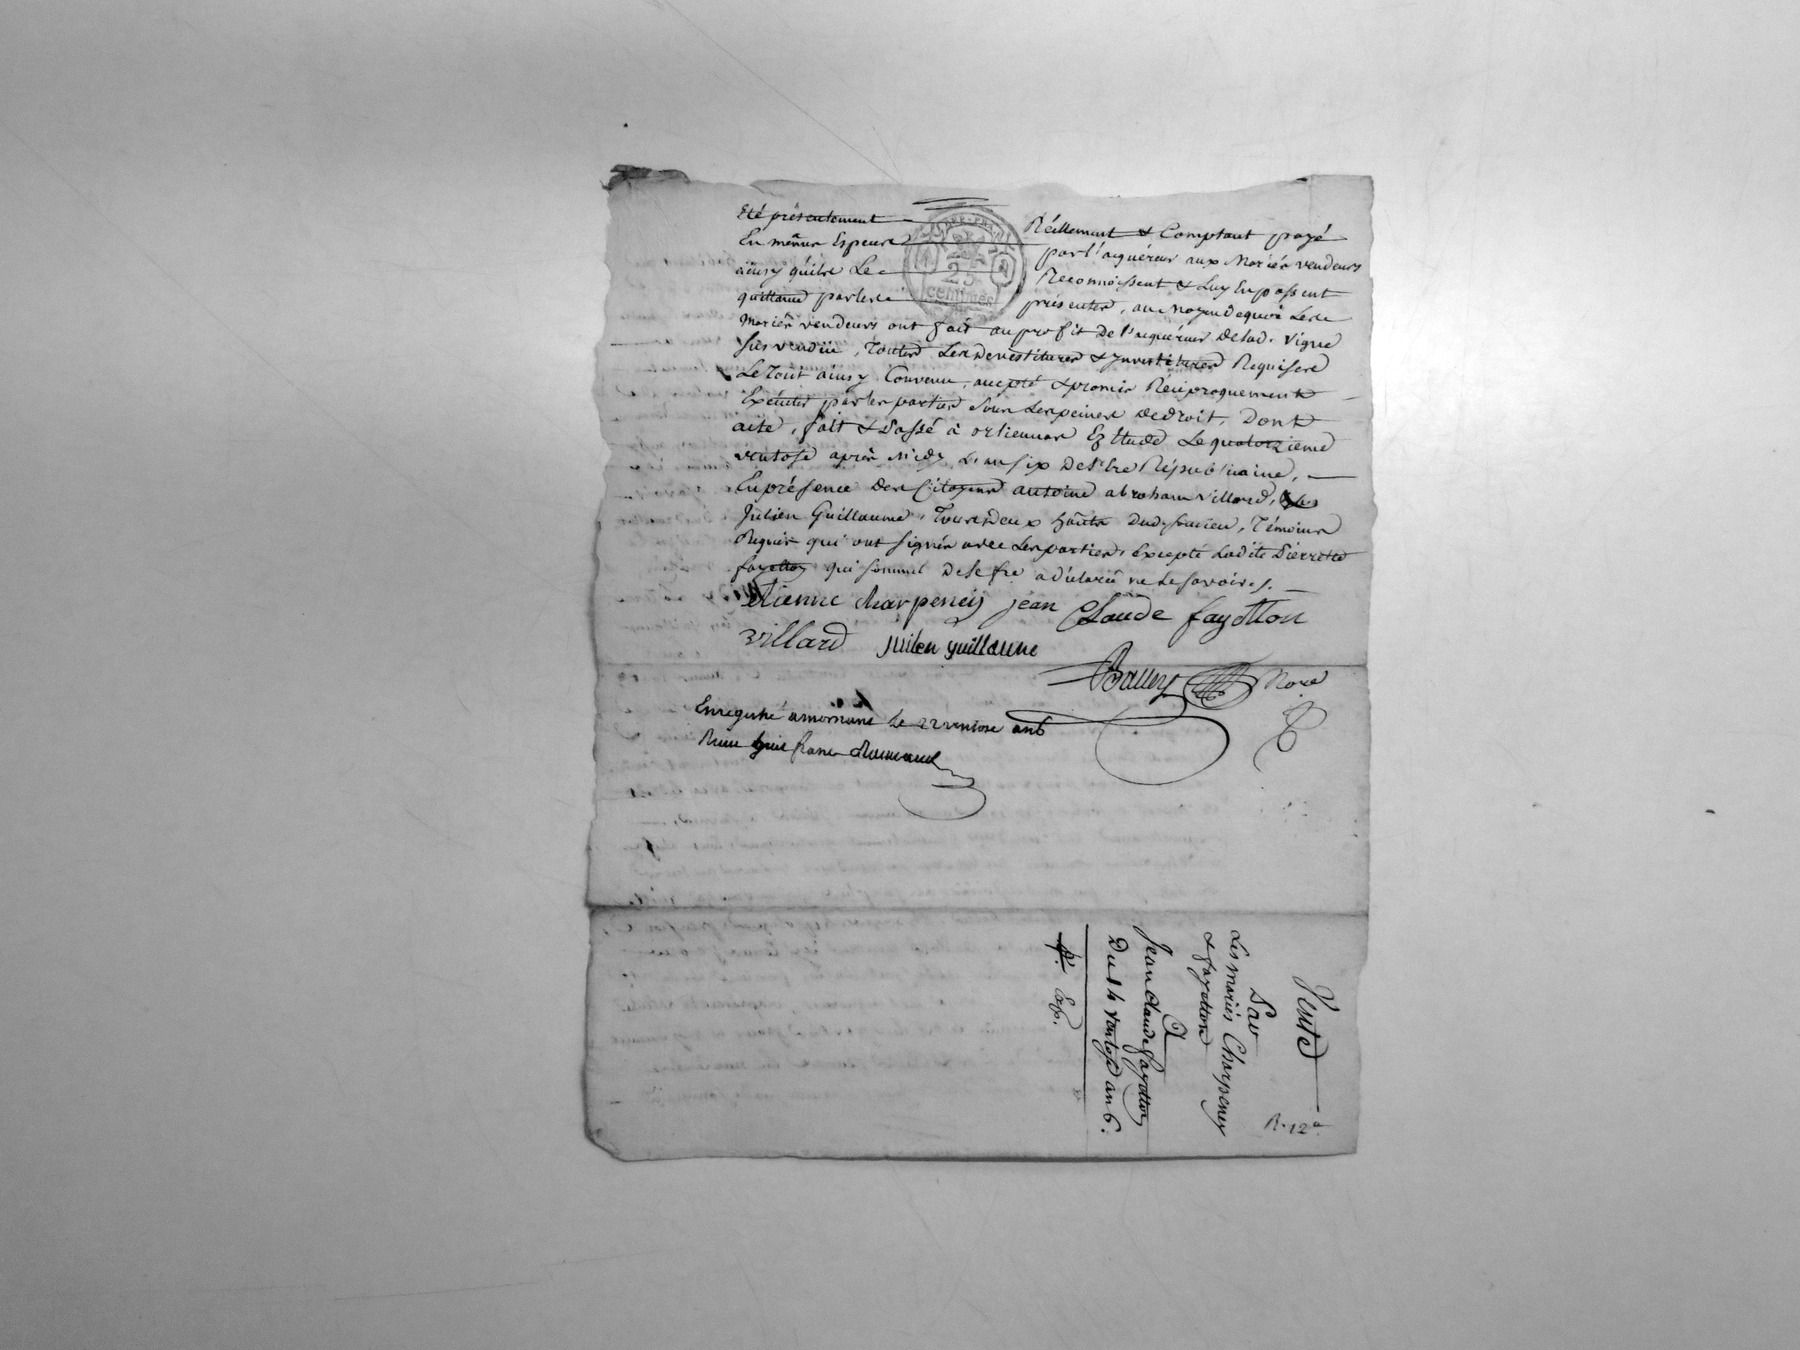 Eté présentement Réellement & Comptant payé
En même Espece par l'aquéreur aux Mariés vendeurs
ainsy qu'ils Le Reconnoissent & Luy En passent
quittance par les présentes, au moyen de quoi Les
Mariés vendeurs ont fait au profit de l'aquéreur de lad. Vigne
sus vendüe, Toutes Les devestitures & Investitures Requises
Le Tout ainsy Convenu, accepté & promis Réciproquement
Executer par les parties sous Les peines de droit, Dont
acte, fait & Passé à orliennas Ez Etude Le quatorzieme
ventose après Midy L'an six de l'Ere Républicaine,
En présence des Citoyens antoine abraham Villard, &
Julien Guillaume, Tous deux hants dud. lieu, Témoins
Requis qui ont signés avec Les parties, Excepté Ladite Pierrette
fayolton qui sommée de le fre a déclaré ne Le savoir.
etienne charpeney jean Claude fayolton
Villard julien guillaume
Balley Nore
Enregistré a mornant le 22 ventose an 6
Recu huit francs
Vente
Par
Les mariés Charpeney
& fayolton
A
Jean Claude fayolton
Du 14 Ventose an 6.
Exp.
R. 12
25
centimes